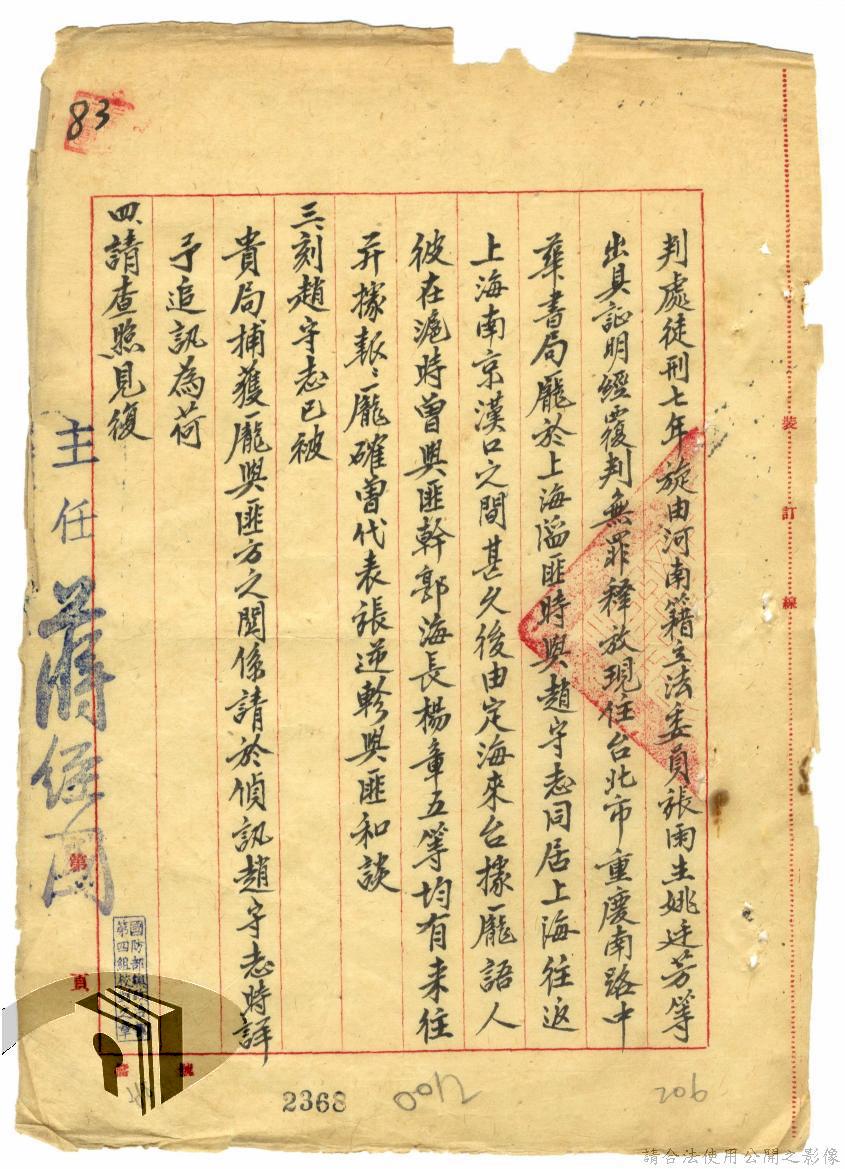 判處徒刑七年旋由河南籍立法委員張雨生姚廷芳等
出具証明經覆判無罪釋放現住台北市重慶南路中
華書局龐於上海淪匪時與趙守志同居上海往返
上海南京漢口之間甚久後由定海來台據龐語人
彼在滬時曾與匪幹郭海長楊章五等均有来往
并據報：龐確曾代表張逆軫與匪和談
三、刻趙守志已被
貴局捕獲龐與匪方之関係請於偵訊趙守志時詳
予追訊為荷
四、請查照見復
主任 蔣經國
83
裝訂線
第 頁
國防部
第四組
2368
400
206
請合法使用公開之影像